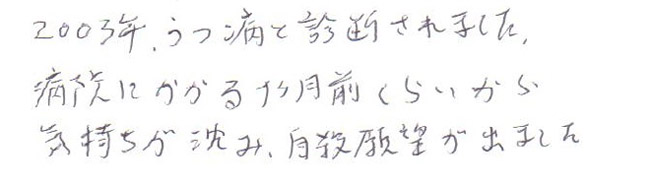 2003年、うつ病と診断されました。
病院にかかる1ヶ月前くらいから
気持ちが沈み、自殺願望が出ました